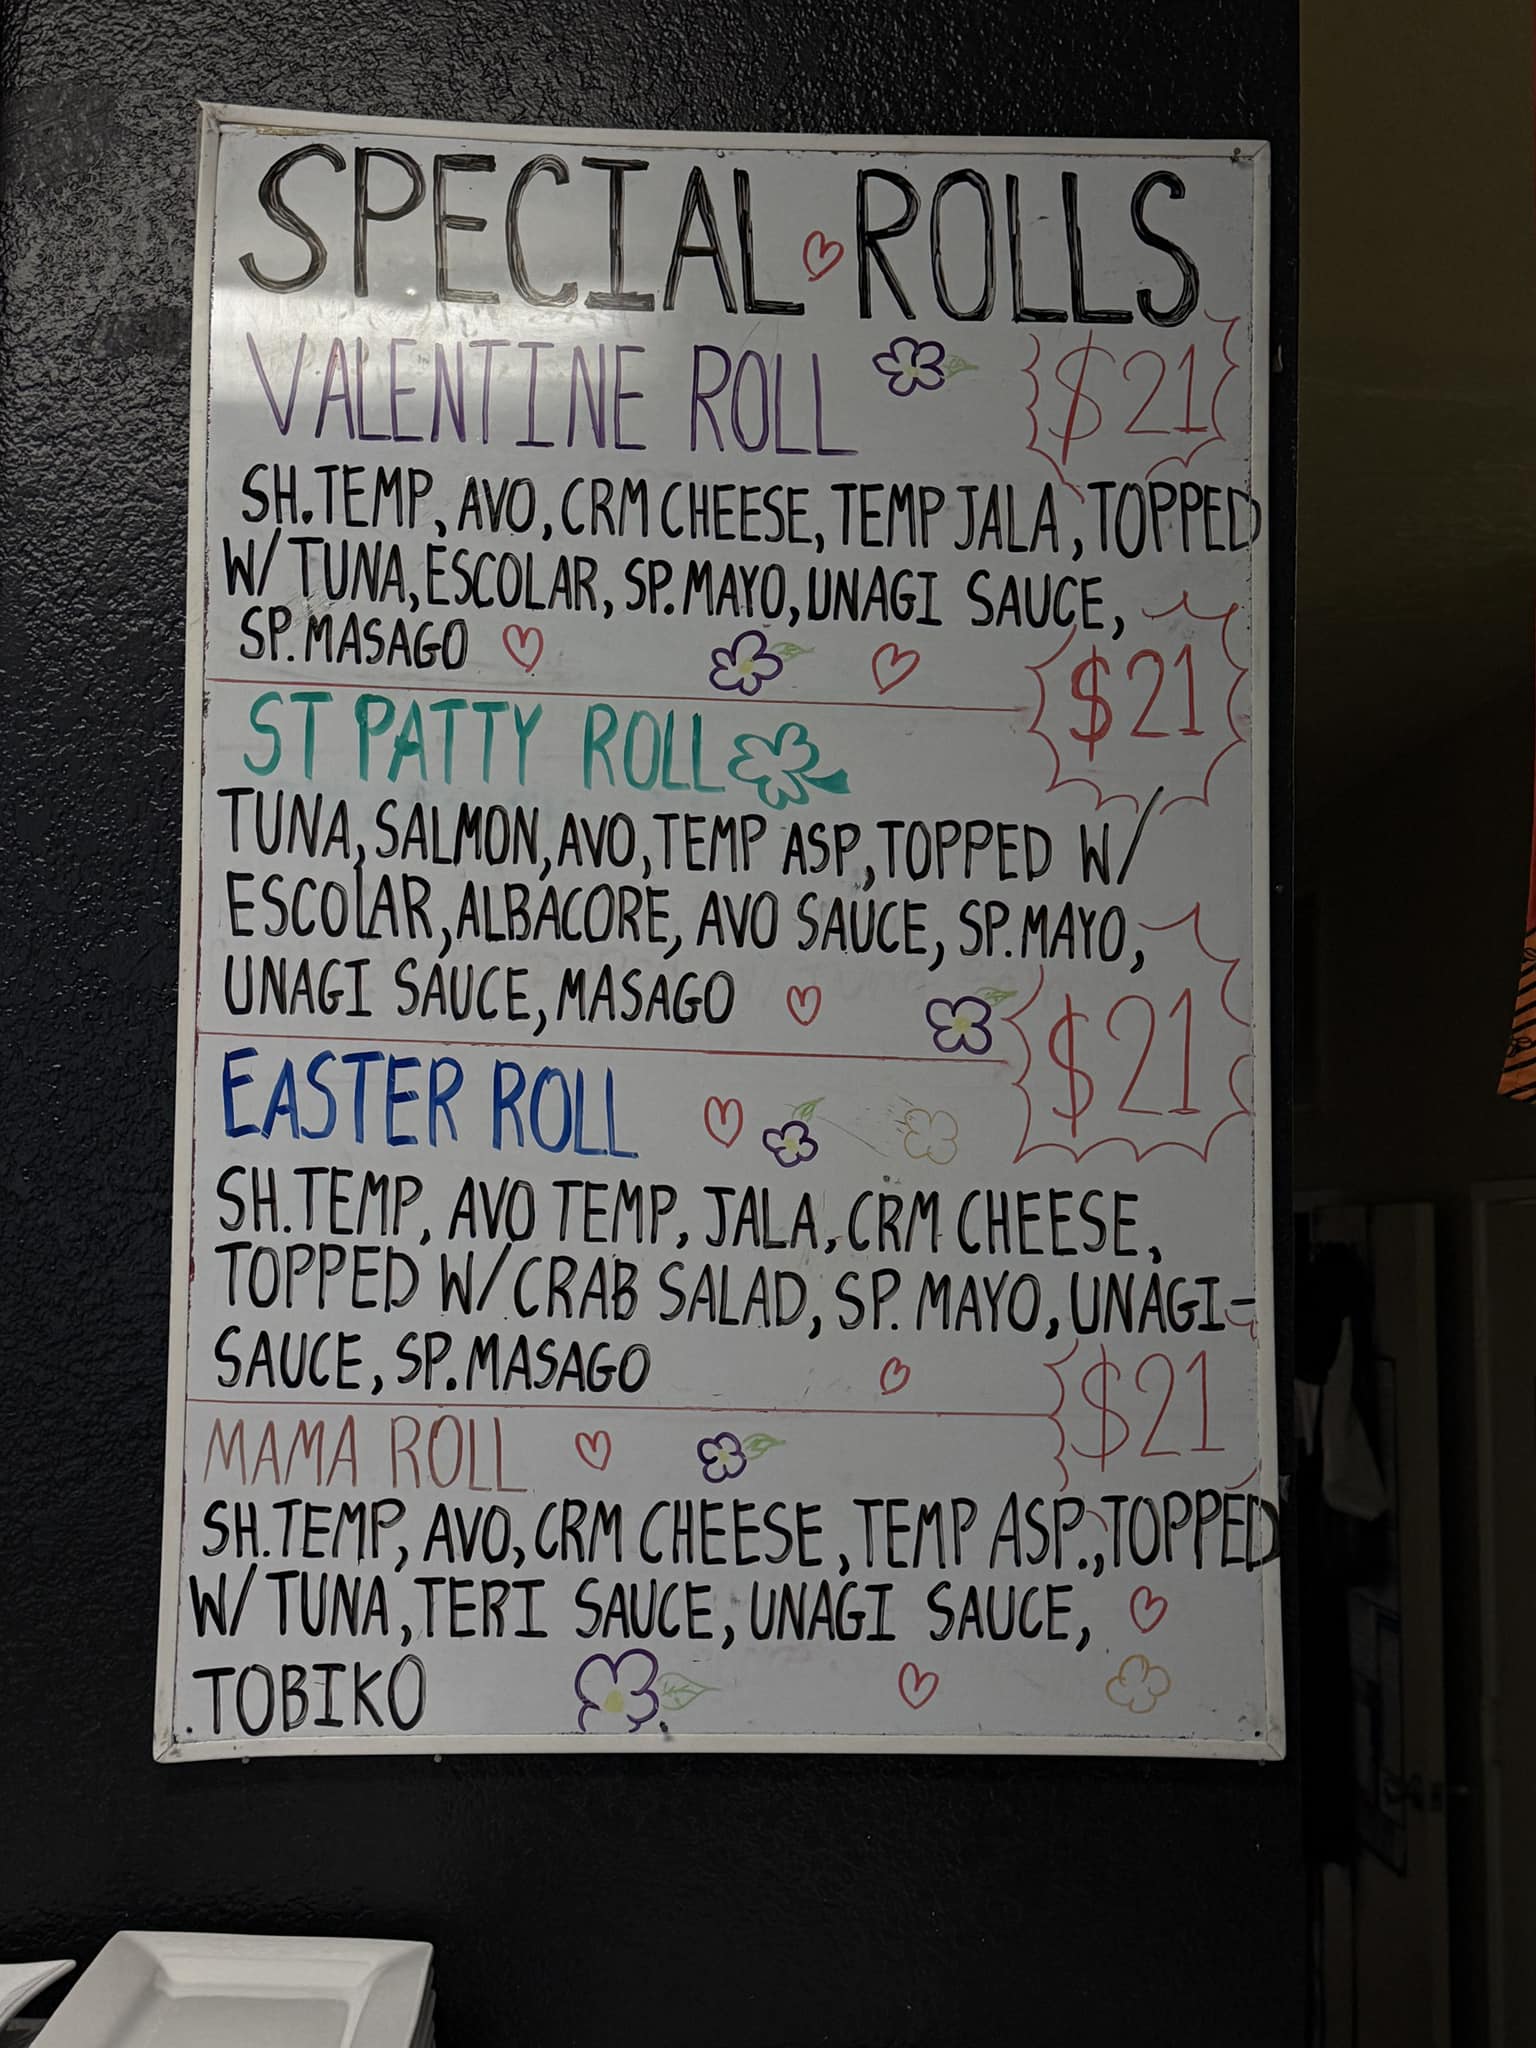 SPECIAL ROLLS
VALENTINE ROLL $21
SH.TEMP, AVO, CRM CHEESE, TEMP JALA, TOPPED
W/ TUNA, ESCOLAR, SP. MAYO, UNAGI SAUCE,
SP. MASAGO
ST PATTY ROLL $21
TUNA, SALMON, AVO, TEMP ASP, TOPPED W/
ESCOLAR, ALBACORE, AVO SAUCE, SP. MAYO,
UNAGI SAUCE, MASAGO
EASTER ROLL $21
SH.TEMP, AVO TEMP, JALA, CRM CHEESE,
TOPPED W/ CRAB SALAD, SP. MAYO, UNAGI-
SAUCE, SP. MASAGO
MAMA ROLL $21
SH.TEMP, AVO, CRM CHEESE, TEMP ASP., TOPPED
W/ TUNA, TERI SAUCE, UNAGI SAUCE,
TOBIKO